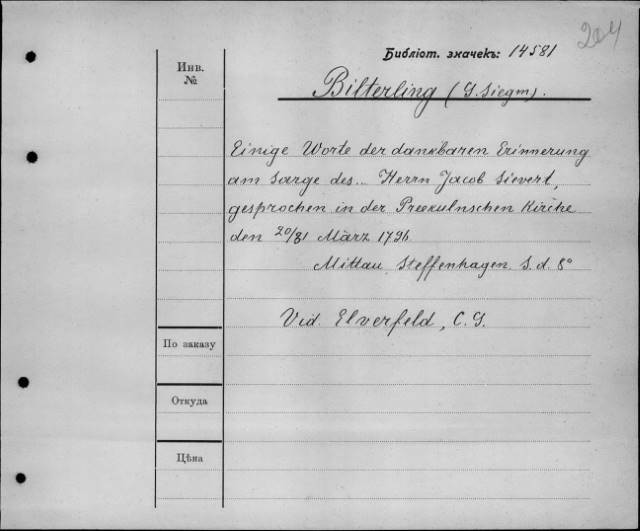 204
Библіот. значекъ: 14581
Инв.
№
Bilterling (G. Siegm).
Einige Worte der dankbaren Erinnerung
am Sarge des... Herrn Jacob Sievert,
gesprochen in der Preekulnschen Kirche
den 20/31 März 1796
Mittau, Steffenhagen. S. d. 8°
Vid. Elverfeld, C. G.
По заказу
Откуда
Цѣна